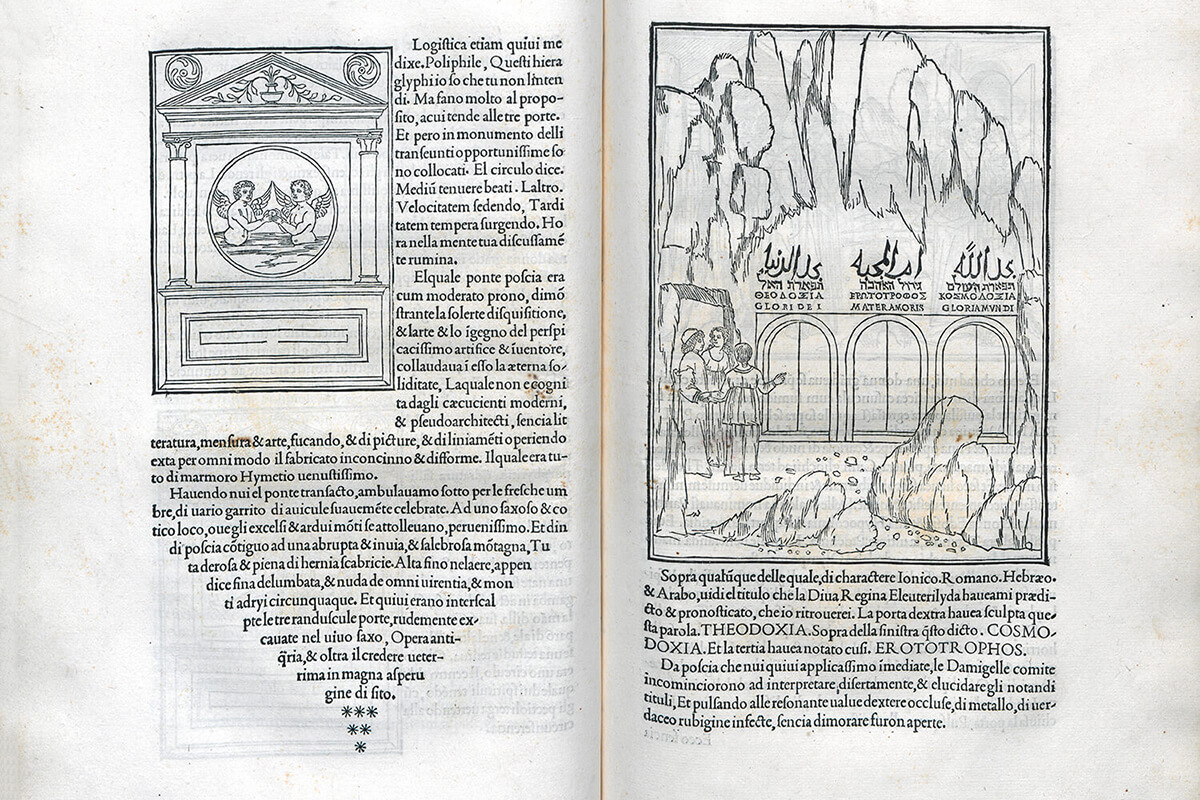 Logiſtica etiam quiui me
dixe. Poliphile, Queſti hiera
glyphi io ſo che tu non lĩnten
di. Ma fano molto al propo-
ſito, a cui tende alle tre porte.
Et pero in monumento delli
tranſeunti opportuniſſime ſo
no collocati. El circulo dice.
Mediũ tenuere beati. Laltro.
Velocitatem ſedendo, Tardi
tatem tempera ſurgendo. Ho
ra nella mente tua diſcuſſamẽ
te rumina.
Elquale ponte poſcia era
cum moderato prono, dimõ
ſtrante la ſolerte diſquiſitione,
& larte & lo ĩgegno del perſpi
caciſſimo artifice & ĩuentore,
collaudaua ĩ eſſo la æterna ſo-
liditate, Laquale non e cogni
ta dagli cæcucienti moderni,
& pſeudoarchitecti, ſencia lit
teratura, menſura & arte, fucando, & di picture, & di liniamẽti operiendo
exta per omni modo il fabricato inconcinno & difforme. Il quale era tu-
to di marmoro Hymetio uenuſtiſſimo.
Hauendo nui el ponte tranſacto, ambulauamo ſotto per le freſche um
bre, di uario garrito di auicule ſuauemẽte celebrate. Ad uno ſaxoſo & co
tico loco, oue gli excelſi & ardui mõti ſe attolleuano, perueniſſimo. Et din
di poſcia cõtiguo ad una abrupta & inuia, & ſalebroſa mõtagna, Tu
ta deroſa & piena di hernia ſcabricie. Alta fino nelaere, appen
dice ſina delumbata, & nuda de omni uirentia, & mon
ti adryi circunquaque. Et quiui erano interſcal
pte le tre randuscule porte, rudemente ex-
cauate nel uiuo ſaxo, Opera anti-
q̃ria, & oltra il credere ueter-
rima in magna aſperu
gine di ſito.
***
**
*
مجد الدنيا ام المحبه مجد الله
תפארת האל גידול האהבה תפארת העולם
ΘΕΟΔΟΞΙΑ ΕΡΩΤΟΤΡΟΦΟΣ ΚΟΣΜΟΔΟΞΙΑ
GLORI DE I MATER AMORIS GLORIA MUNDI
Sopra qualũque delle quale, di charactere Ionico. Romano. Hebræo.
& Arabo, uidi el titulo che la Diua Regina Eleuterilyda haueami prædi-
cto & pronoſticato, che io ritrouerei. La porta dextra hauea ſculpta que-
ſta parola. THEODOXIA. Sopra della ſiniſtra q̃ſto dicto. COSMO-
DOXIA. Et la tertia hauea notato cuſi. EROTOTROPHOS.
Da poſcia che nui quiui applicaſſimo imediate, le Damigelle comite
incominciorono ad interpretare, diſertamente, & elucidare gli notandi
tituli, Et pulſando alle reſonante ualue dextere occluſe, di metallo, di uer-
daceo rubigine infecte, ſencia dimorare furon aperte.